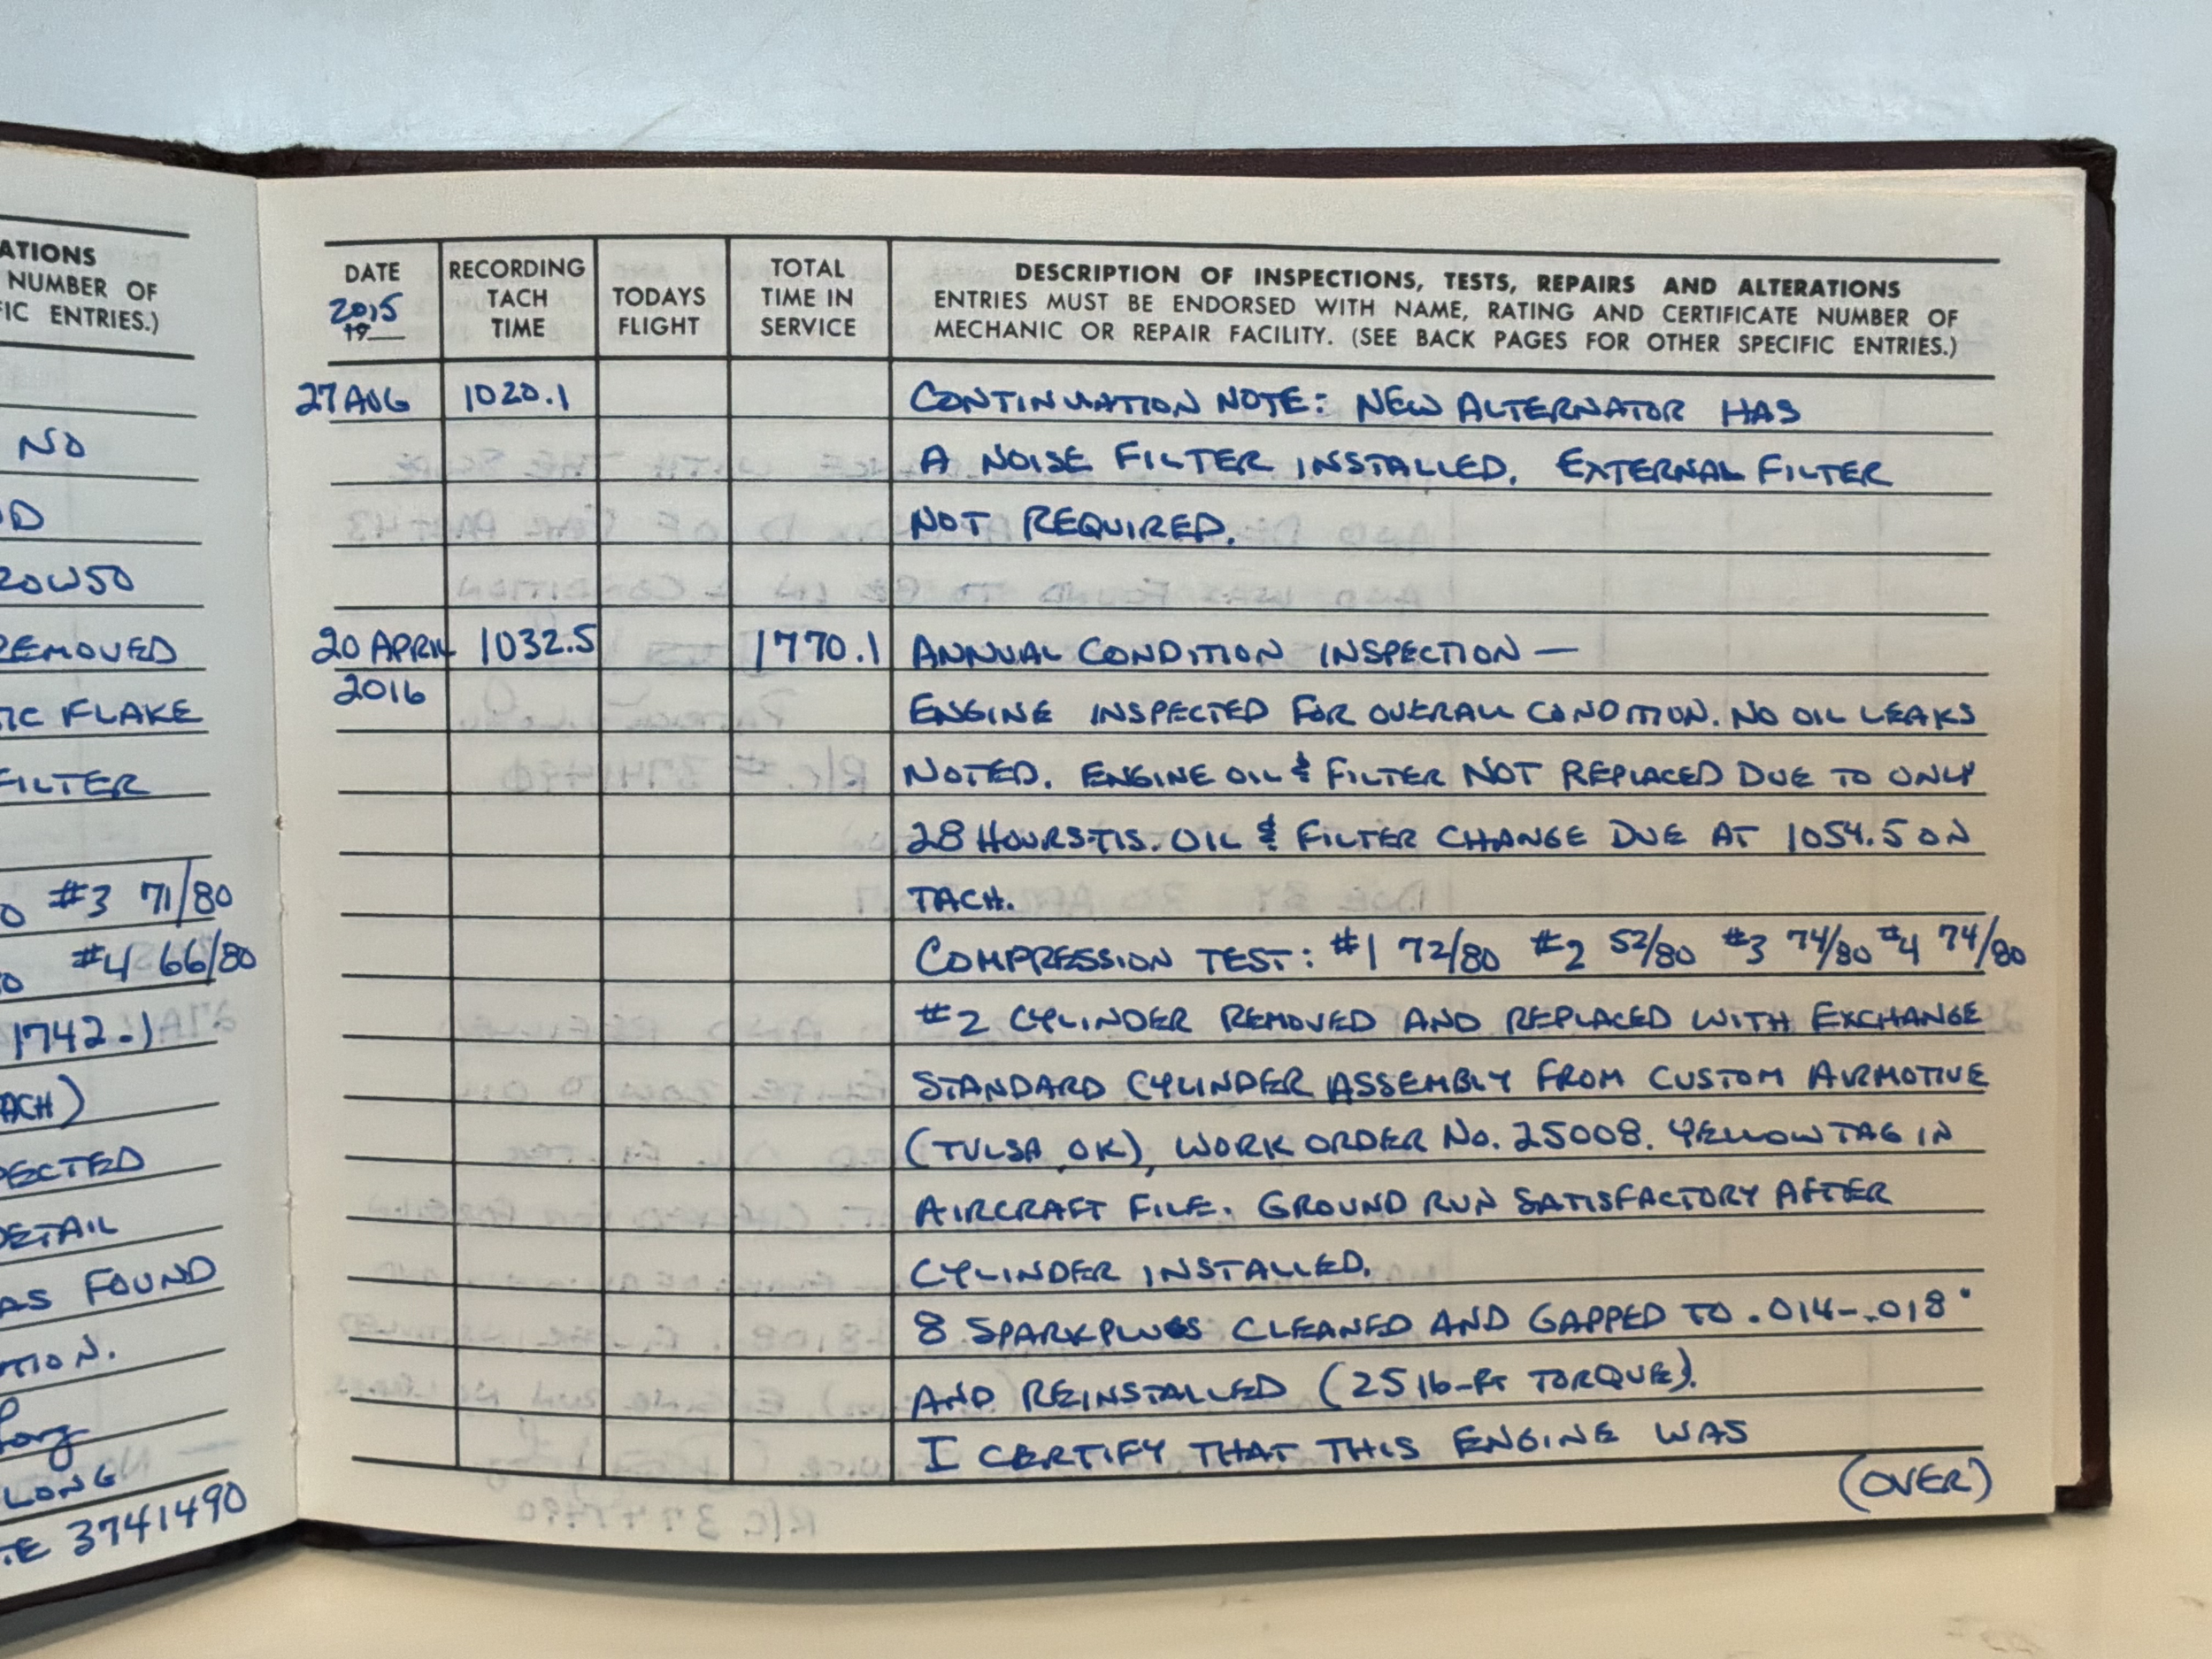 ATIONS
NUMBER OF
FIC ENTRIES.)
NO
20W50
REMOVED
FLAKE
FILTER
#3 71/80
#4 66/80
1742.1
TACH)
DETAIL
AS FOUND
LONG
3741490
DATE
2015
19
RECORDING
TACH
TIME
TODAYS
FLIGHT
TOTAL
TIME IN
SERVICE
DESCRIPTION OF INSPECTIONS, TESTS, REPAIRS AND ALTERATIONS
ENTRIES MUST BE ENDORSED WITH NAME, RATING AND CERTIFICATE NUMBER OF
MECHANIC OR REPAIR FACILITY. (SEE BACK PAGES FOR OTHER SPECIFIC ENTRIES.)
27 AUG 1020.1 CONTINUATION NOTE: NEW ALTERNATOR HAS
A NOISE FILTER INSTALLED. EXTERNAL FILTER
NOT REQUIRED.
20 APRIL 1032.5 1770.1 ANNUAL CONDITION INSPECTION —
2016 ENGINE INSPECTED FOR OVERALL CONDITION. NO OIL LEAKS
NOTED. ENGINE OIL & FILTER NOT REPLACED DUE TO ONLY
28 HOURS TIS. OIL & FILTER CHANGE DUE AT 1054.5 ON
TACH.
COMPRESSION TEST: #1 72/80 #2 52/80 #3 74/80 #4 74/80
#2 CYLINDER REMOVED AND REPLACED WITH EXCHANGE
STANDARD CYLINDER ASSEMBLY FROM CUSTOM AIRMOTIVE
(TULSA, OK), WORK ORDER No. 25008. YELLOW TAG IN
AIRCRAFT FILE. GROUND RUN SATISFACTORY AFTER
CYLINDER INSTALLED.
8 SPARKPLUGS CLEANED AND GAPPED TO .014-.018"
AND REINSTALLED (25 lb-ft TORQUE).
I CERTIFY THAT THIS ENGINE WAS
(OVER)